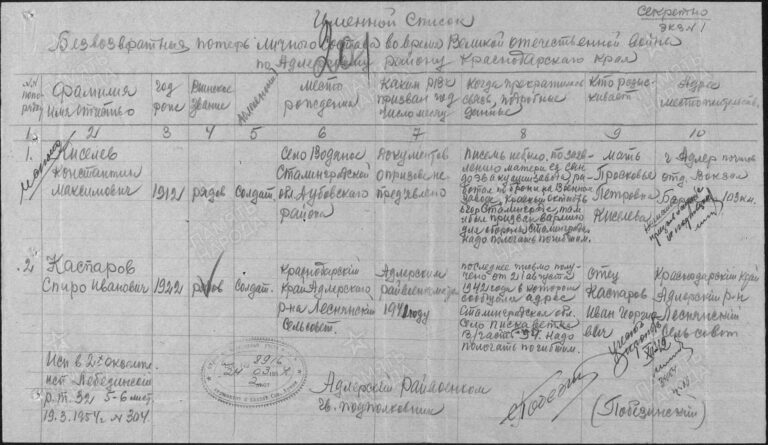 Секретно
экз №1
Именной Список
Безвозвратных потерь личного состава во время Великой отечественной войны
по Адлерскому району Краснодарского Края
№№ попоряд
Фамилия Имя Отчество
год рожд
Воинское звание
место рождения
Каким РВК призван год число месяц
Когда прекратилась связь, подробные данные
Кто разыскивает
Адрес местожительств.
1. 2 3 4 5 6 7 8 9 10
1. Киселев Константин Максимович
1912
рядов
Солдат.
Село Водяное Сталинградской обл. Дубовского района
Документов о призове не предъявлено
Писем небыло. По заявлению матери ея сын до эвакуации работал
завода, Красный октябрь в гор Сталинграде, там и был призван в армию для обороны Сталинграда. Надо полагать погибшим.
мать Прасковье Петровна Киселева
г Адлер почтов отд. Вокзал
2. Каспаров Спиро Иванович
1922
рядов
Солдат.
Краснодарский Край Адлерского р-на Леснянский Сельсовет.
Адлерским райвоенкомат 1941 году
последнее письмо получено от 21 августа 1942 года в котором сообщили адрес Сталинградская обл. Село Пискаветка В/часть-34. Надо полагать погибшим.
отец Каспаров Иван Георгиевич
Краснодарский Край Адлерский р-н Леснянский Сельсовет
Исп в 2х экземпл.
р.т. 32 5-6 лист
19.3.1954г №304
Адлерский Райвоенком
гв. подполковник